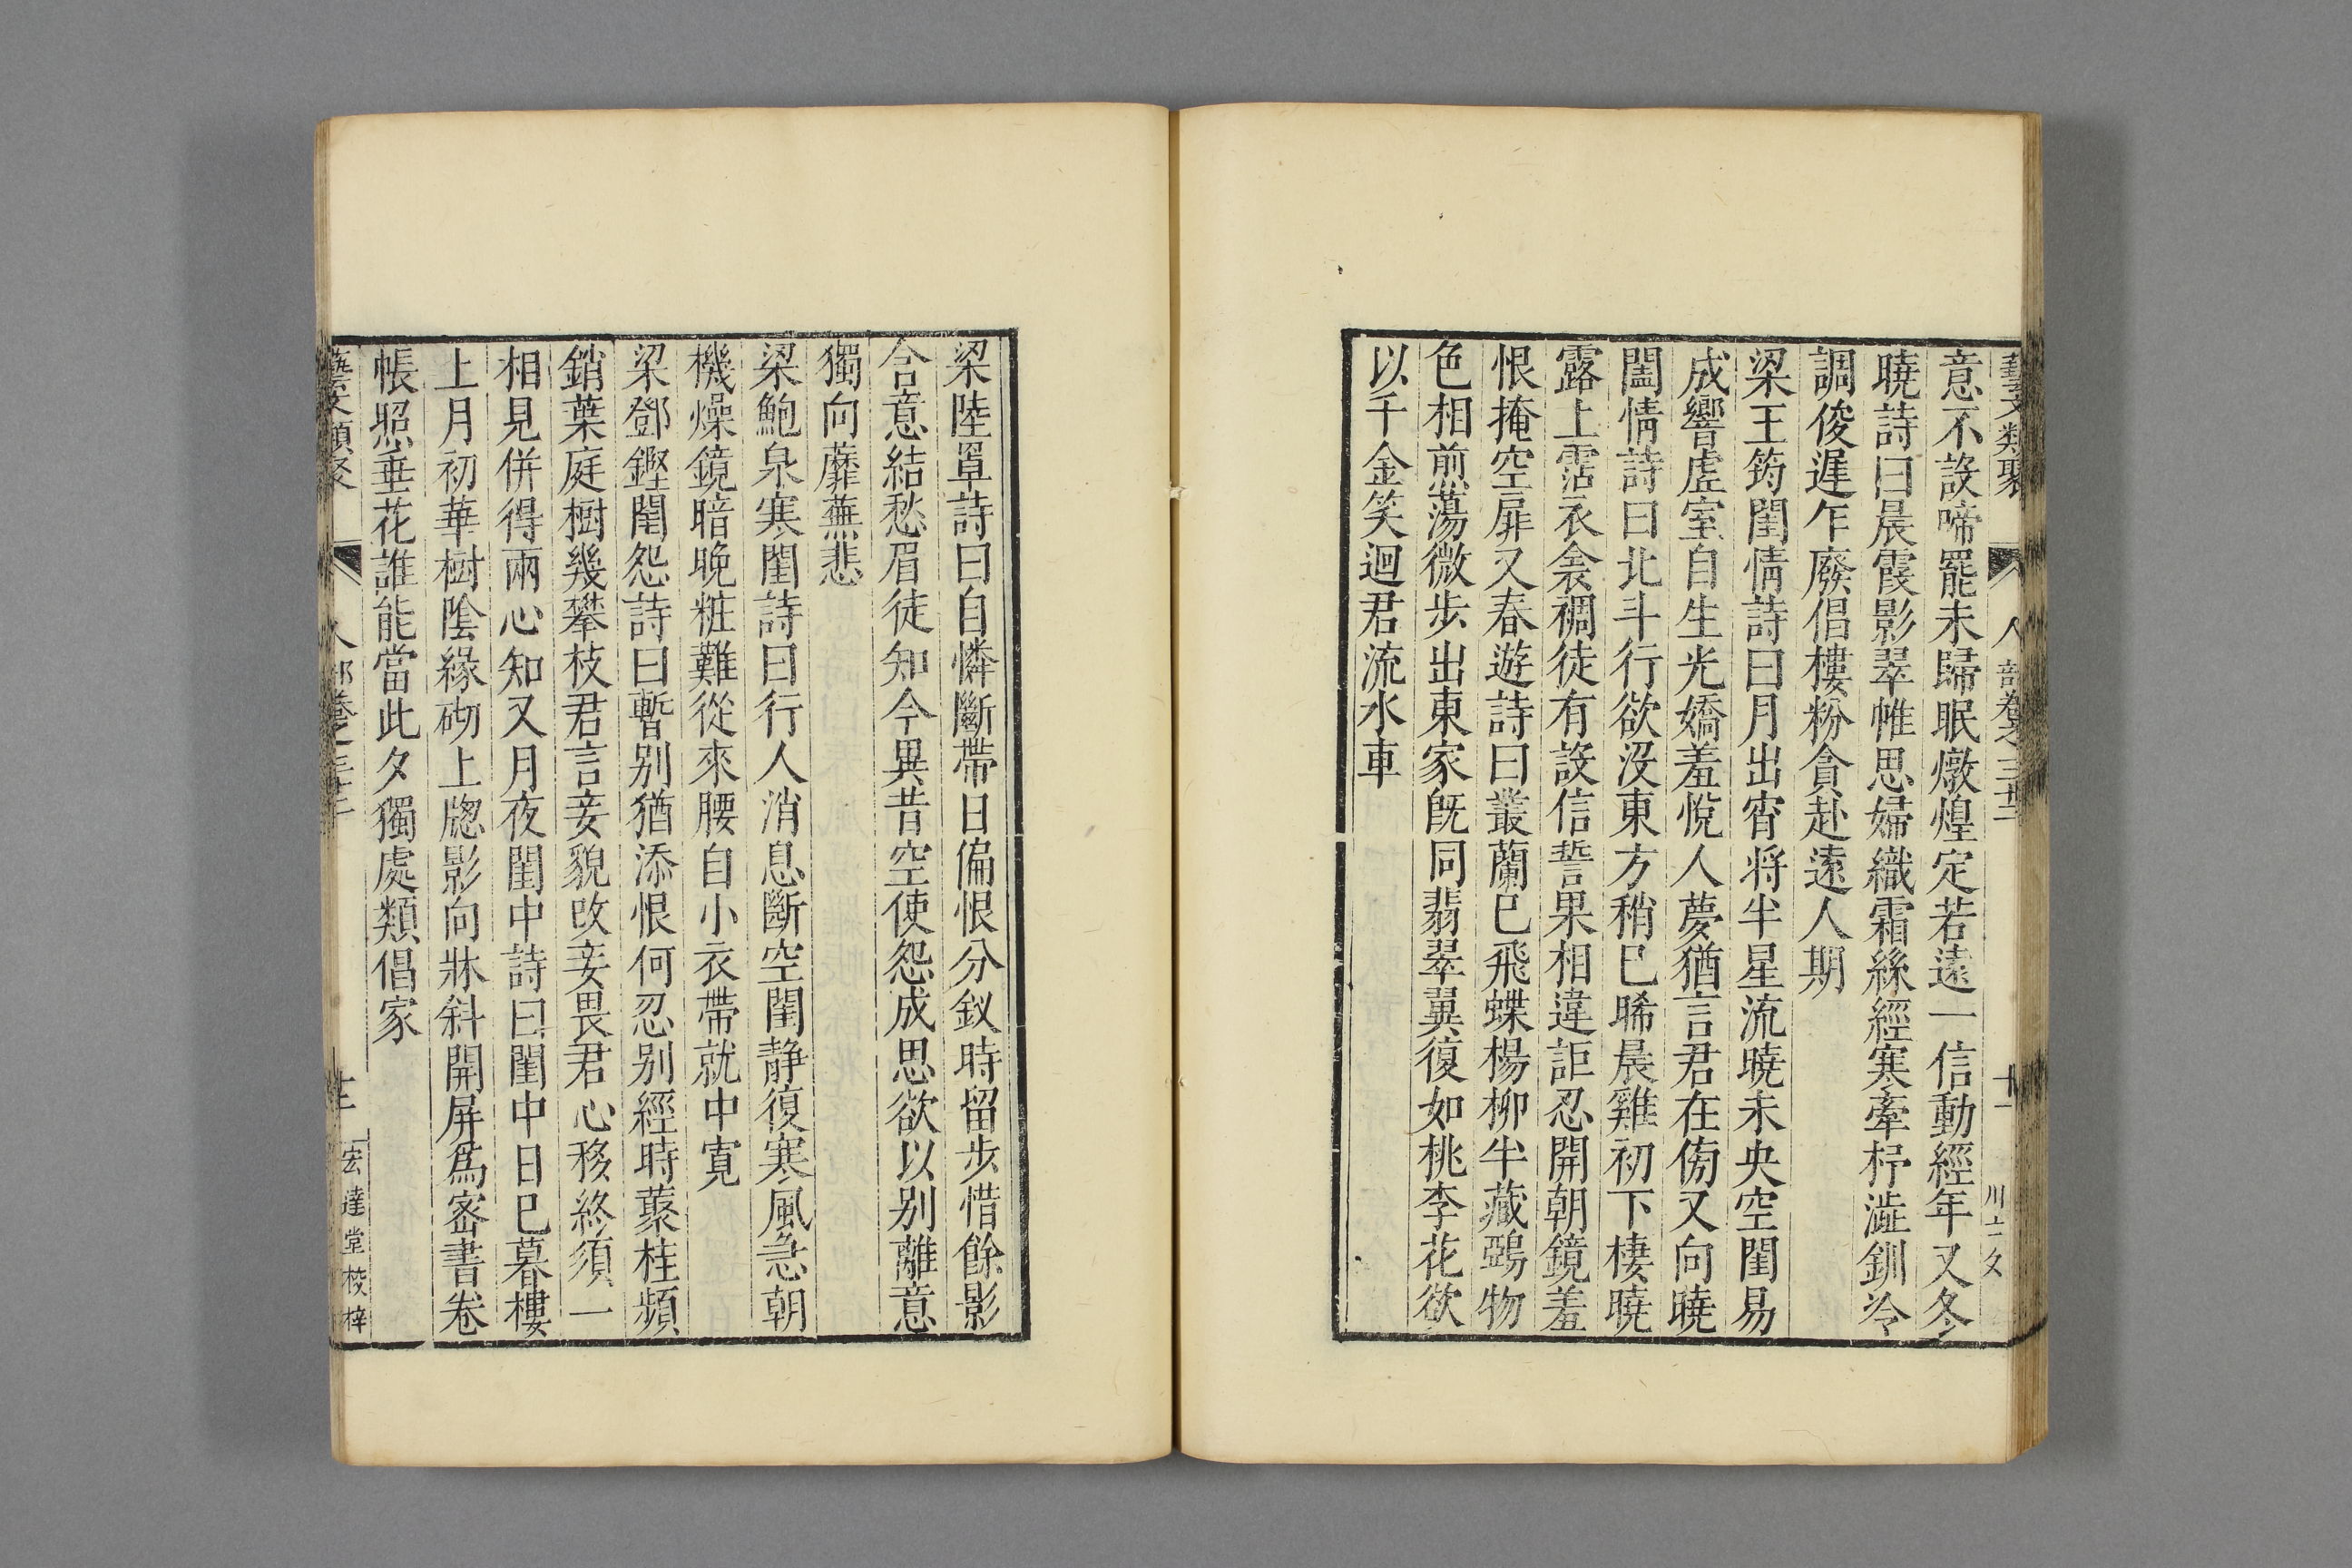 藝文類聚 人部卷之三十二 十一
意不設啼罷未歸眠燉煌定若遠一信動經年又冬
曉詩曰晨霞影翠帷思婦織霜絲經寒牽杼澁釧冷
調俊遲乍廢倡樓粉貪赴遠人期
梁王筠閨情詩曰月出宵将半星流曉未央空閨易
成響虛室自生光嬌羞悅人夢猶言君在傍又向曉
閨情詩曰北斗行欲没東方稍已晞晨雞初下棲曉
露上霑衣衾裯徒有設信誓果相違詎忍開朝鏡羞
恨掩空扉又春遊詩曰叢蘭已飛蝶楊柳半藏鵶物
色相煎蕩微步出東家既同翡翠翼復如桃李花欲
以千金笑迴君流水車
梁陸罩詩曰自憐斷帶日偏恨分釵時留步惜餘影
含意結愁眉徒知今異昔空使怨成思欲以别離意
獨向蘼蕪悲
梁鮑泉寒閨詩曰行人消息斷空閨静復寒風急朝
機燥鏡暗晚粧難從來腰自小衣帶就中寬
梁鄧鏗閨怨詩曰暫别猶添恨何忍别經時藂桂頻
銷葉庭樹幾攀枝君言妾貌改妾畏君心移終須一
相見併得兩心知又月夜閨中詩曰閨中日已暮樓
上月初華樹陰緣砌上牕影向牀斜開屏為密書卷
帳照垂花誰能當此夕獨處類倡家
藝文類聚 人部卷之三十二 十二 宏達堂校梓